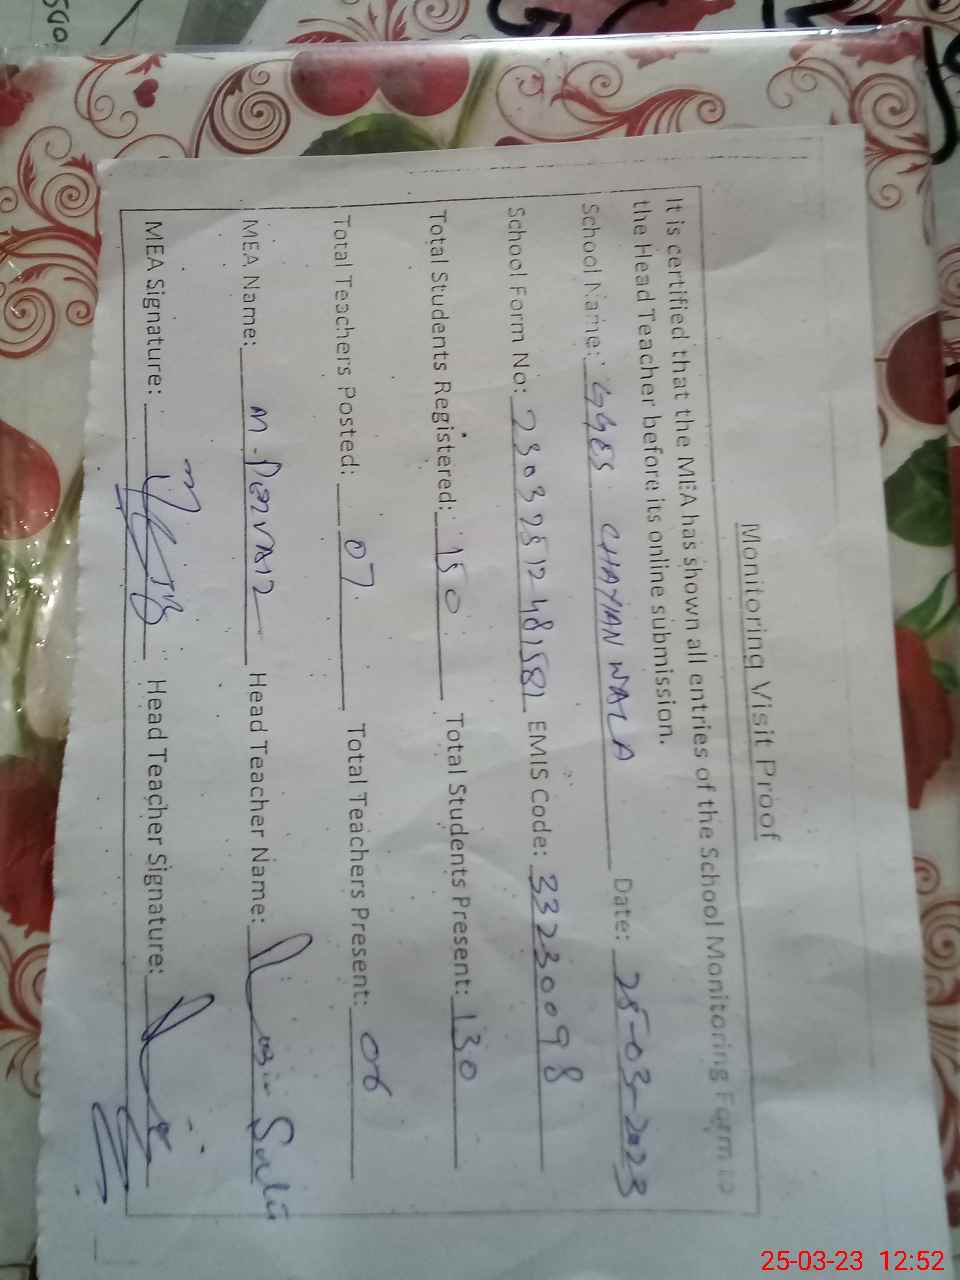 Monitoring Visit Proof
It is certified that the MEA has shown all entries of the School Monitoring Form to
the Head Teacher before its online submission.
School Name: GGES CHAYIAN WALA Date: 25-03-2023
School Form No: EMIS Code: 33230098
Total Students Registered: 150 Total Students Present: 130
Total Teachers Posted: 07 Total Teachers Present: 06
MEA Name: M. Head Teacher Name:
MEA Signature: Head Teacher Signature:
25-03-23 12:52